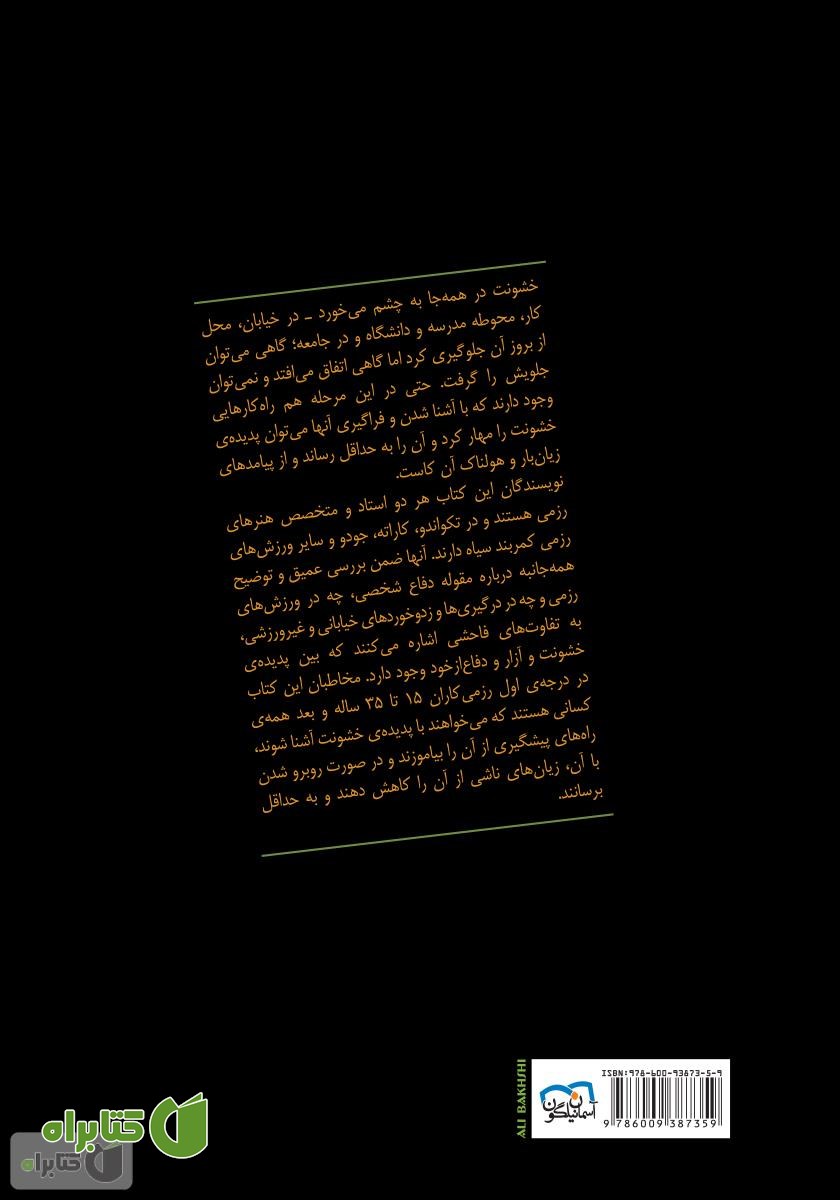 خشونت در همه‌جا به چشم می‌خورد ـ در خیابان، محل
کار، محوطه مدرسه و دانشگاه و در جامعه؛ گاهی می‌توان
از بروز آن جلوگیری کرد اما گاهی اتفاق می‌افتد و نمی‌توان
جلویش را گرفت. حتی در این مرحله هم راه‌کارهایی
وجود دارند که با آشنا شدن و فراگیری آنها می‌توان پدیده‌ی
خشونت را مهار کرد و آن را به حداقل رساند و از پیامدهای
زیان‌بار و هولناک آن کاست.
نویسندگان این کتاب هر دو استاد و متخصص هنرهای
رزمی هستند و در تکواندو، کاراته، جودو و سایر ورزش‌های
رزمی کمربند سیاه دارند. آنها ضمن بررسی عمیق و توضیح
همه‌جانبه درباره مقوله دفاع شخصی، چه در ورزش‌های
رزمی و چه در درگیری‌ها و زدوخوردهای خیابانی و غیرورزشی،
به تفاوت‌های فاحشی اشاره می‌کنند که بین پدیده‌ی
خشونت و آزار و دفاع‌ازخود وجود دارد. مخاطبان این کتاب
در درجه‌ی اول رزمی‌کاران ۱۵ تا ۳۵ ساله و بعد همه‌ی
کسانی هستند که می‌خواهند با پدیده‌ی خشونت آشنا شوند،
راه‌های پیشگیری از آن را بیاموزند و در صورت روبرو شدن
با آن، زیان‌های ناشی از آن را کاهش دهند و به حداقل
برسانند.
ALI BAKHSHI
ISBN:978-600-93873-5-9
آسمانیلگون
9 786009 387359
کتابراه
کتابراه